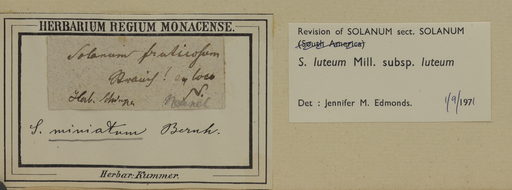 HERBARIUM REGIUM MONACENSE.
Solanum fruticosum
Braun! ex loco
N.
Herb.
S. miniatum Bernh.
Herbar. Kummer.
Revision of SOLANUM sect. SOLANUM
(South America)
S. luteum Mill. subsp. luteum
Det : Jennifer M. Edmonds. 1/9/1971